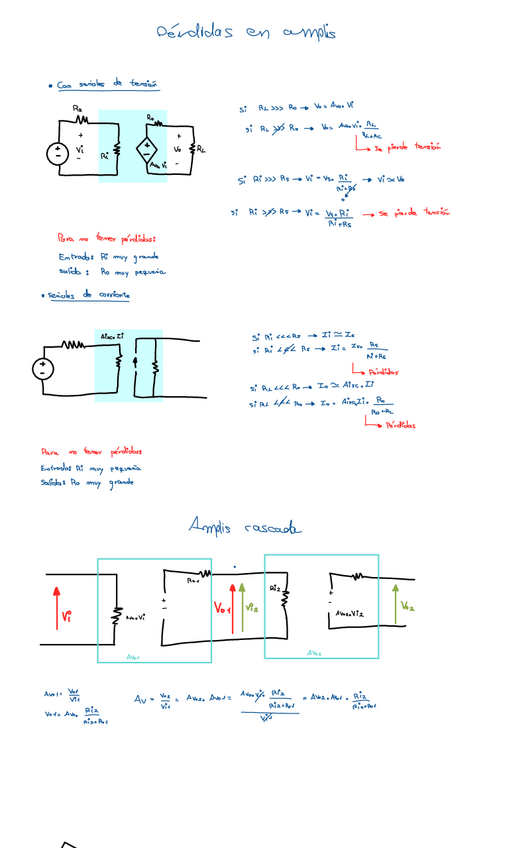 Pérdidas en amplis
• Con señales de tensión
Rs
+
Vi
-
Ri
Ro
Avo.Vi
+
Vo
-
RL
Si RL >>> Ro → Vo = Avo.Vi
Si RL >>> Ro → Vo = Avo.Vi. RL / RL+Ro
→ Se pierde tensión
Si Ri >>> Rs → Vi = Vs. Ri / Ri+Rs → Vi ≃ Vs
Si Ri >>> Rs → Vi = Vs.Ri / Ri+Rs → Se pierde tensión
Para no tener pérdidas:
Entrada: Ri muy grande
Salida: Ro muy pequeña
• Señales de corriente
Aisc.Ii
Si Ri <<< Rs → Ii ≃ Is
Si Ri <<< Rs → Ii = Is. Rs / Ri+Rs
→ Pérdidas
Si RL <<< Ro → Io ≃ Aisc.Ii
Si RL <<< Ro → Io = Aisc.Ii. Ro / Ro+RL
→ Pérdidas
Para no tener pérdidas
Entrada: Ri muy pequeña
Salida: Ro muy grande
Amplis cascada
Vi
+
-
Avo.Vi
Ro1
Avo1
Vo1
Vi2
Ri2
+
-
Avo2.Vi2
Avo2
Vo2
Avo1 = Vo1 / Vi1
Vo1 = Avo. Ri2 / Ri2+Ro1
Av = Vo2 / Vi1 = Avo2. Avo1 = Avo.Vi. Ri2 / Ri2+Ro1 / Vi = Avo2.Avo1. Ri2 / Ri2+Ro1